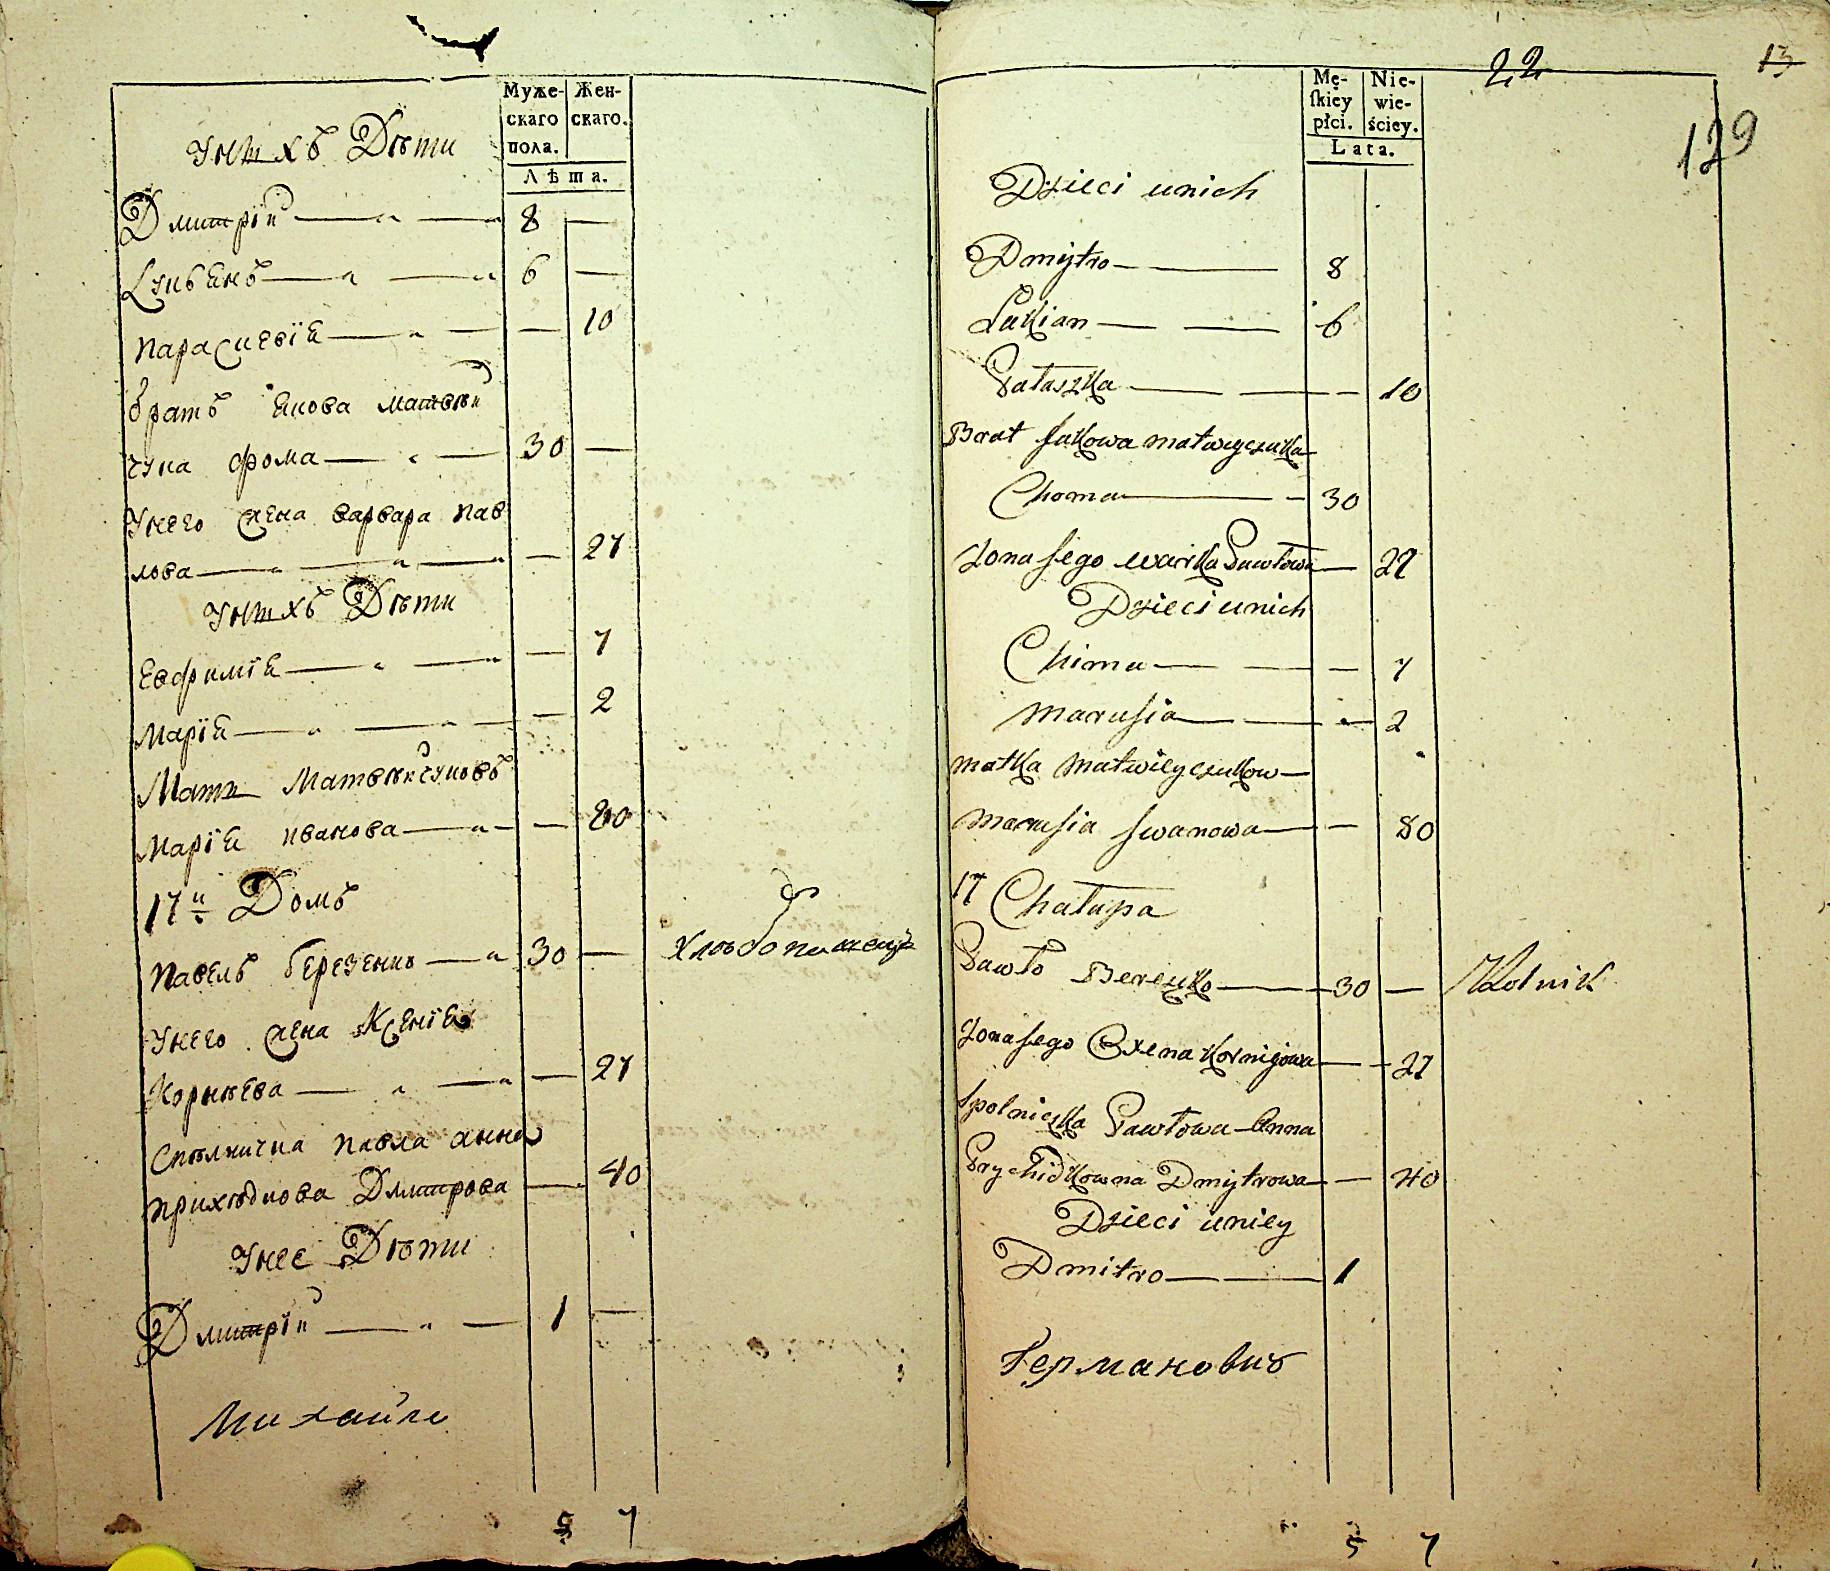 Муже-
скаго
пола.
Жен-
скаго.
Лѣта.
У нихъ Дѣти
Дмитрїй — „ — „ 8 —
Лукіянъ — „ — „ 6 —
Параскевїя — „ — — 10
братъ Якова Матвѣй
чука Фома — „ — 30 —
У него жена Варвара Пав
лова — „ — „ — „ — 27
У нихъ Дѣти
Евфимїя — „ — „ — 7
Марїя — „ — „ — — 2
Мати Матвѣйчуковъ
Марїя Иванова — „ — — 80
17й Домъ
Павелъ Березенко — „ 30 — Хлѣбопашецъ
У него жена Ксенїя
Корнѣева — „ — „ — 27
Спѣлничка Павла Анна
Прихѣдкова Дмитрова — 40
У нее Дѣти
Дмитрїй — „ — 1 —
Михайло
5 7
22
13
129
Mę-
skiey
płci.
Nie-
wie-
ściey.
Lata.
Dzieci unich
Dmytro — 8
Łukian — — 6
Paraszka — — — 10
Brat Jakowa Matwyczuka
Choma — — 30
Zona jego Warka Pawłowa — 27
Dzieci unich
Chima — — — 7
Marusia — — — 2
Matka Matwieyczukow —
Marusia Iwanowa — — 80
17 Chałupa
Pawło Berezko — 30 — Rolnik
Zona jego Oxena Kornijowa — — 27
Spolniczka Pawłowa Anna
Prychidkowna Dmytrowa — — 40
Dzieci uniey
Dmitro — — 1
Германовичъ
5 7